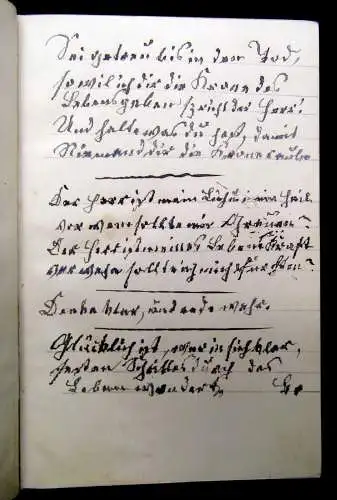 Sei getreu bis in den Tod,
so wil ich dir die Krone des
Lebens geben spricht der Herr.
Und halte was du hast, damt
Niemand dir die Krone raube
Der Herr ist mein Licht und mein Heil
vor wem sollte mir Grauen?
Der Herr ist meines Lebens Kraft
vor wehn sollt ich mich fürchten?
Denke klar, und rede wahr.
Glücklich ist, wer in sich klar,
festen Schrittes durch das
Leben wandert,